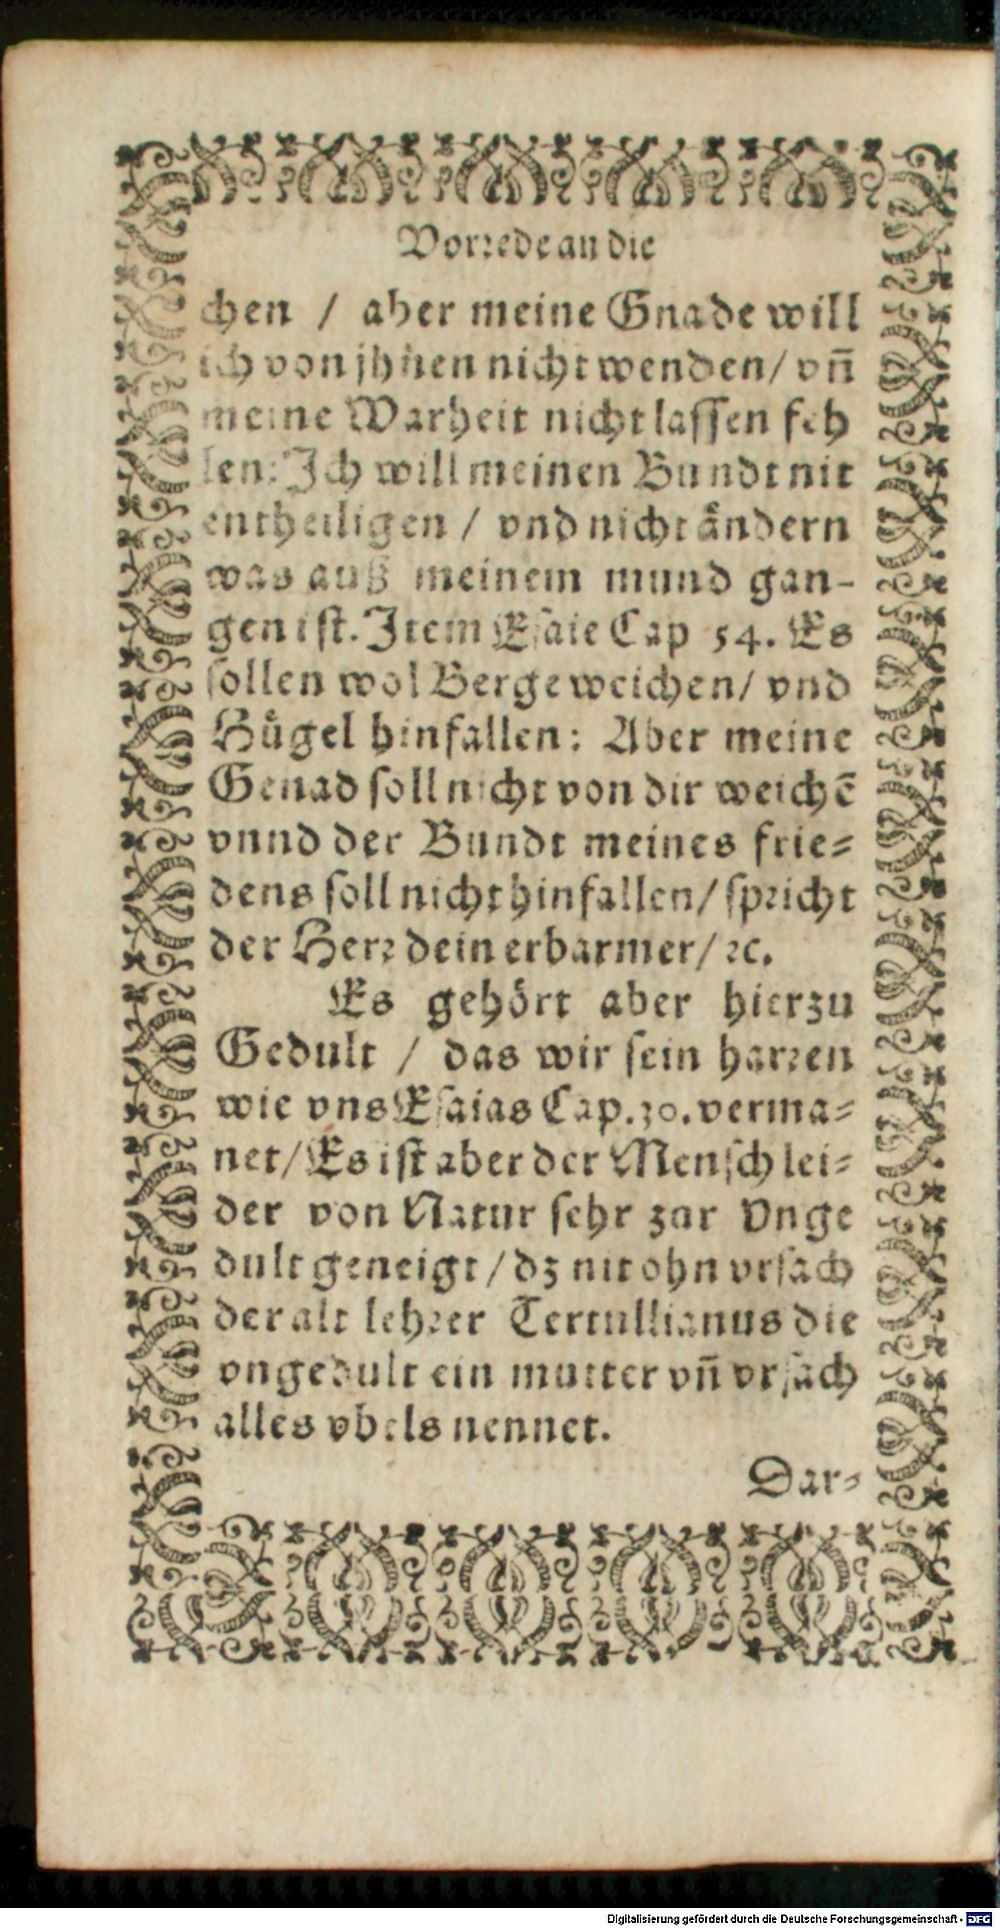 Vorrede an die
chen / aber meine Gnade will
ich von jhnen nicht wenden / vñ
meine Warheit nicht lassen feh
len: Ich will meinen Bundt nit
entheiligen / vnd nicht ändern
was auß meinem mund gan-
gen ist. Item Esaie Cap 54. Es
sollen wol Berge weichen / vnd
Hügel hinfallen: Aber meine
Genad soll nicht von dir weichē
vnnd der Bundt meines frie-
dens soll nicht hinfallen / spricht
der Herr dein erbarmer / ꝛc.
Es gehört aber hierzu
Gedult / das wir sein harren
wie vns Esaias Cap. 30. verma-
net / Es ist aber der Mensch lei-
der von Natur sehr zur Vnge
dult geneigt / dz nit ohn vrsach
der alt lehrer Tertullianus die
vngedult ein mutter vñ vrsach
alles vbels nennet.
Dar-
Digitalisierung gefördert durch die Deutsche Forschungsgemeinschaft - DFG